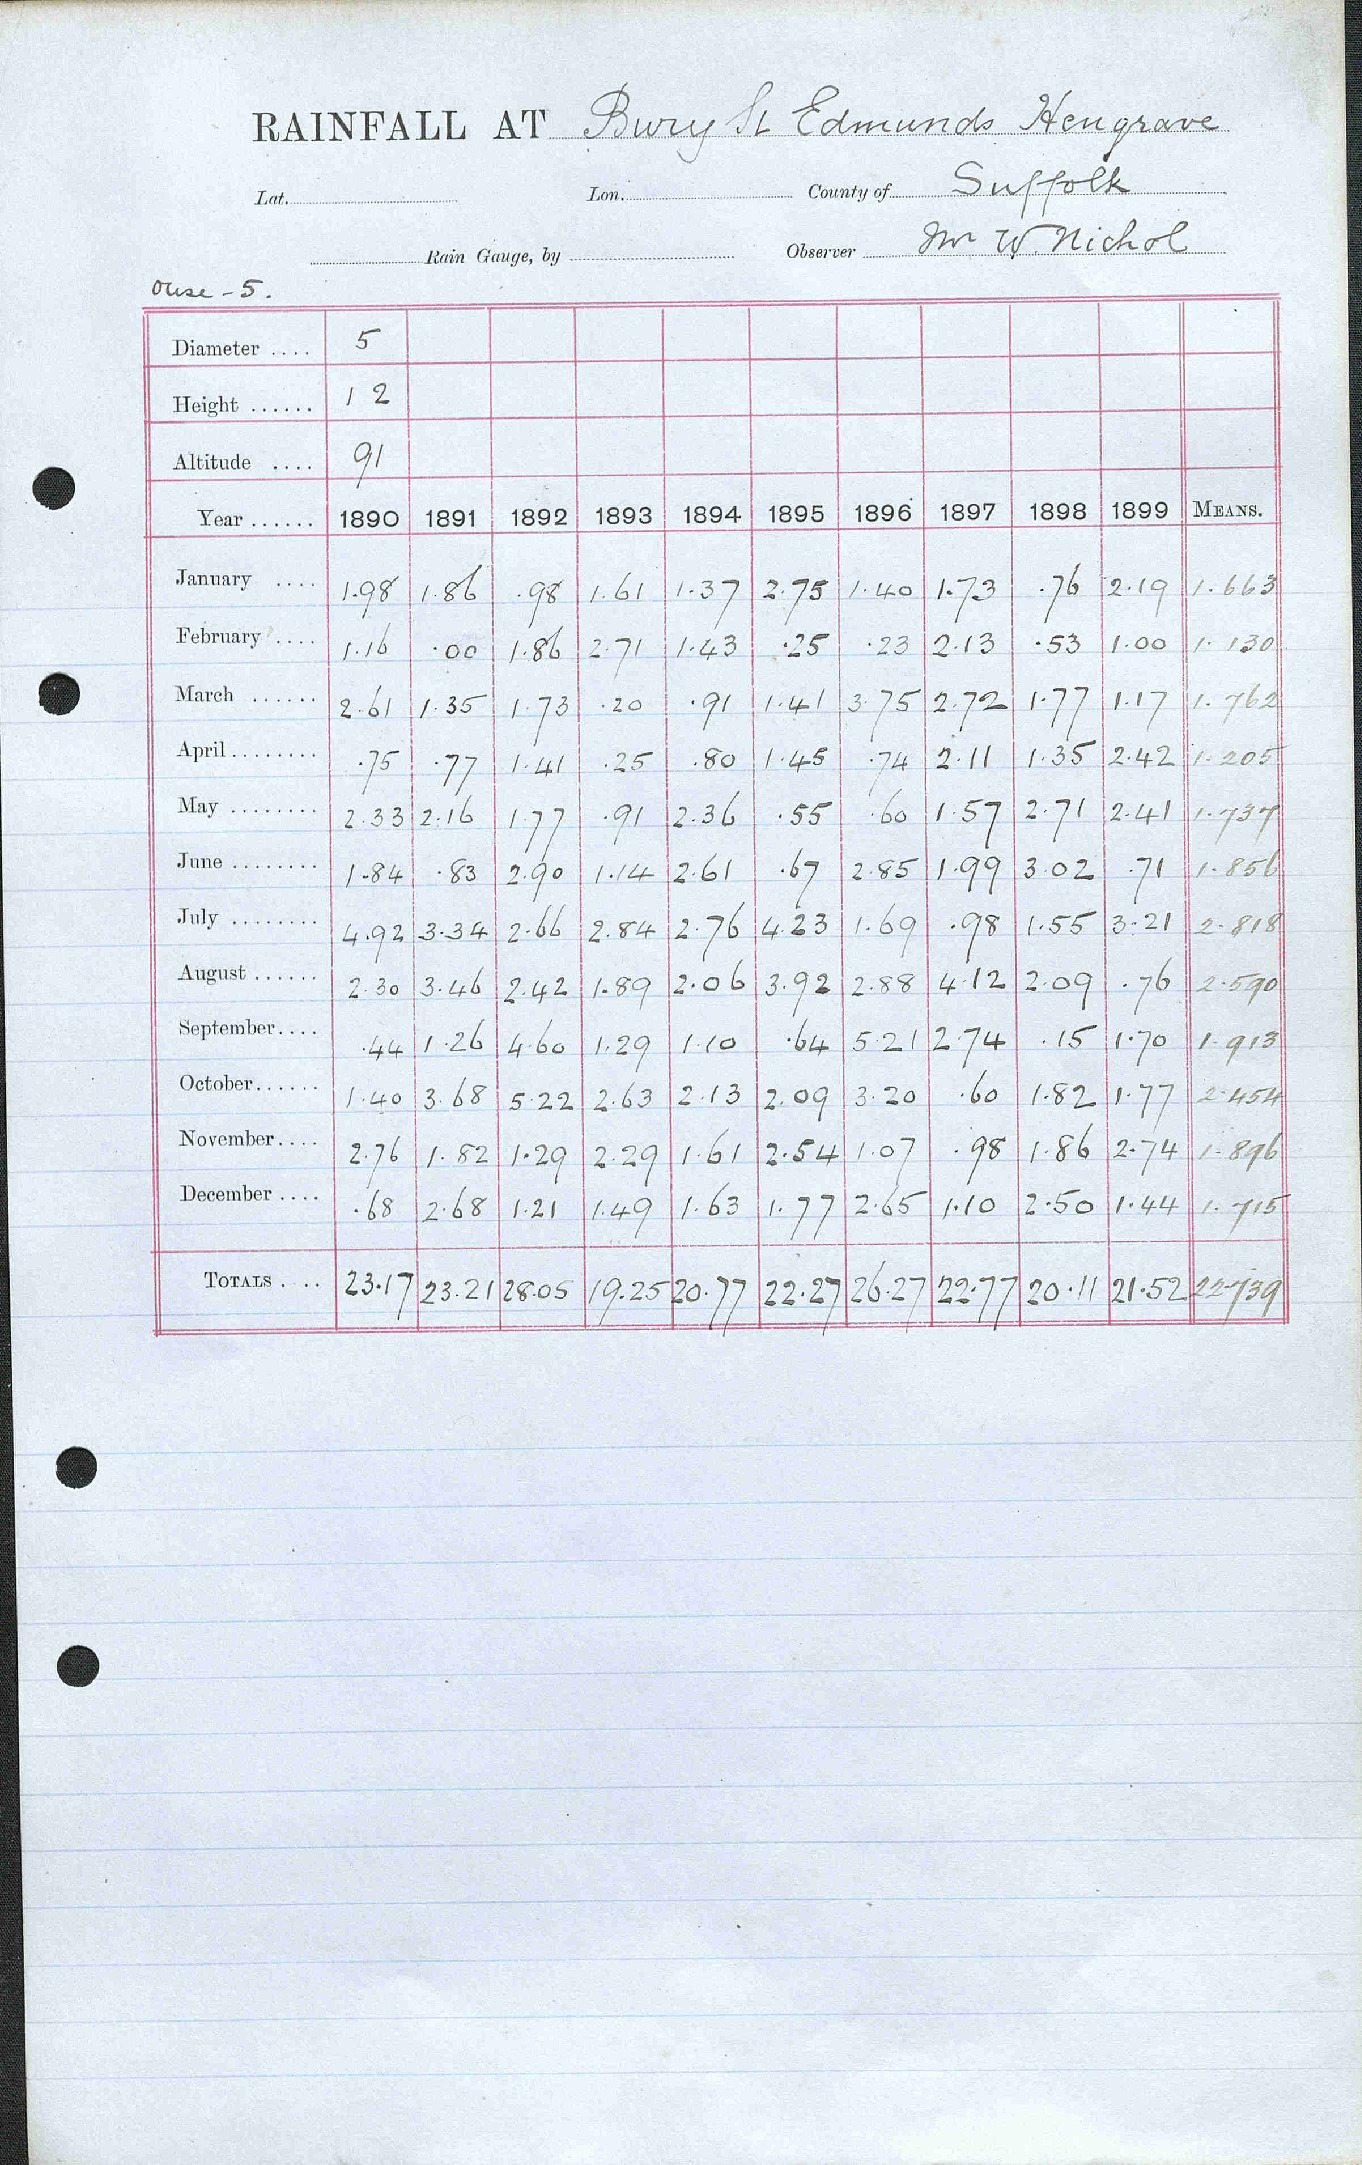 RAINFALL AT Bury St Edmunds Hengrave
Lat. Lon. County of Suffolk
Rain Gauge, by Observer Mr W. Nichol
Ouse - 5.
Diameter .... 5
Height ...... 12
Altitude .... 91
Year ...... 1890 1891 1892 1893 1894 1895 1896 1897 1898 1899 MEANS.
January .... 1.98 1.86 .98 1.61 1.37 2.75 1.40 1.73 .76 2.19 1.663
February .... 1.16 .00 1.86 2.71 1.43 .25 .23 2.13 .53 1.00 1.130
March ...... 2.61 1.35 1.73 .20 .91 1.41 3.75 2.72 1.77 1.17 1.762
April ........ .75 .77 1.41 .25 .80 1.45 .74 2.11 1.35 2.42 1.205
May ........ 2.33 2.16 1.77 .91 2.36 .55 .60 1.57 2.71 2.41 1.737
June ........ 1.84 .83 2.90 1.14 2.61 .67 2.85 1.99 3.02 .71 1.856
July ........ 4.92 3.34 2.66 2.84 2.76 4.23 1.69 .98 1.55 3.21 2.818
August ...... 2.30 3.46 2.42 1.89 2.06 3.92 2.88 4.12 2.09 .76 2.590
September .... .44 1.26 4.60 1.29 1.10 .64 5.21 2.74 .15 1.70 1.913
October ...... 1.40 3.68 5.22 2.63 2.13 2.09 3.20 .60 1.82 1.77 2.454
November .... 2.76 1.82 1.29 2.29 1.61 2.54 1.07 .98 1.86 2.74 1.896
December .... .68 2.68 1.21 1.49 1.63 1.77 2.65 1.10 2.50 1.44 1.715
TOTALS .... 23.17 23.21 28.05 19.25 20.77 22.27 26.27 22.77 20.11 21.52 22.739